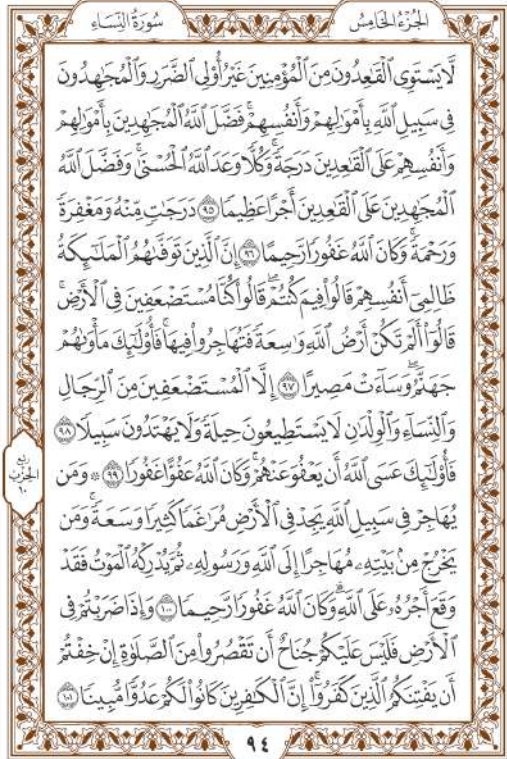 الجزء الخامس
سورة النساء
لَّا يَسْتَوِي الْقَاعِدُونَ مِنَ الْمُؤْمِنِينَ غَيْرُ أُولِي الضَّرَرِ وَالْمُجَاهِدُونَ
فِي سَبِيلِ اللَّهِ بِأَمْوَالِهِمْ وَأَنفُسِهِمْ ۚ فَضَّلَ اللَّهُ الْمُجَاهِدِينَ بِأَمْوَالِهِمْ
وَأَنفُسِهِمْ عَلَى الْقَاعِدِينَ دَرَجَةً ۚ وَكُلًّا وَعَدَ اللَّهُ الْحُسْنَىٰ ۚ وَفَضَّلَ اللَّهُ
الْمُجَاهِدِينَ عَلَى الْقَاعِدِينَ أَجْرًا عَظِيمًا ٩٥ دَرَجَاتٍ مِّنْهُ وَمَغْفِرَةً
وَرَحْمَةً ۚ وَكَانَ اللَّهُ غَفُورًا رَّحِيمًا ٩٦ إِنَّ الَّذِينَ تَوَفَّاهُمُ الْمَلَائِكَةُ
ظَالِمِي أَنفُسِهِمْ قَالُوا فِيمَ كُنتُمْ ۖ قَالُوا كُنَّا مُسْتَضْعَفِينَ فِي الْأَرْضِ ۚ
قَالُوا أَلَمْ تَكُنْ أَرْضُ اللَّهِ وَاسِعَةً فَتُهَاجِرُوا فِيهَا ۚ فَأُولَٰئِكَ مَأْوَاهُمْ
جَهَنَّمُ ۖ وَسَاءَتْ مَصِيرًا ٩٧ إِلَّا الْمُسْتَضْعَفِينَ مِنَ الرِّجَالِ
وَالنِّسَاءِ وَالْوِلْدَانِ لَا يَسْتَطِيعُونَ حِيلَةً وَلَا يَهْتَدُونَ سَبِيلًا ٩٨
فَأُولَٰئِكَ عَسَى اللَّهُ أَن يَعْفُوَ عَنْهُمْ ۚ وَكَانَ اللَّهُ عَفُوًّا غَفُورًا ٩٩ ۞ وَمَن
يُهَاجِرْ فِي سَبِيلِ اللَّهِ يَجِدْ فِي الْأَرْضِ مُرَاغَمًا كَثِيرًا وَسَعَةً ۚ وَمَن
يَخْرُجْ مِن بَيْتِهِ مُهَاجِرًا إِلَى اللَّهِ وَرَسُولِهِ ثُمَّ يُدْرِكْهُ الْمَوْتُ فَقَدْ
وَقَعَ أَجْرُهُ عَلَى اللَّهِ ۗ وَكَانَ اللَّهُ غَفُورًا رَّحِيمًا ١٠٠ وَإِذَا ضَرَبْتُمْ فِي
الْأَرْضِ فَلَيْسَ عَلَيْكُمْ جُنَاحٌ أَن تَقْصُرُوا مِنَ الصَّلَاةِ إِنْ خِفْتُمْ
أَن يَفْتِنَكُمُ الَّذِينَ كَفَرُوا ۚ إِنَّ الْكَافِرِينَ كَانُوا لَكُمْ عَدُوًّا مُّبِينًا ١٠١
ربع
الحزب
١٠
٩٤